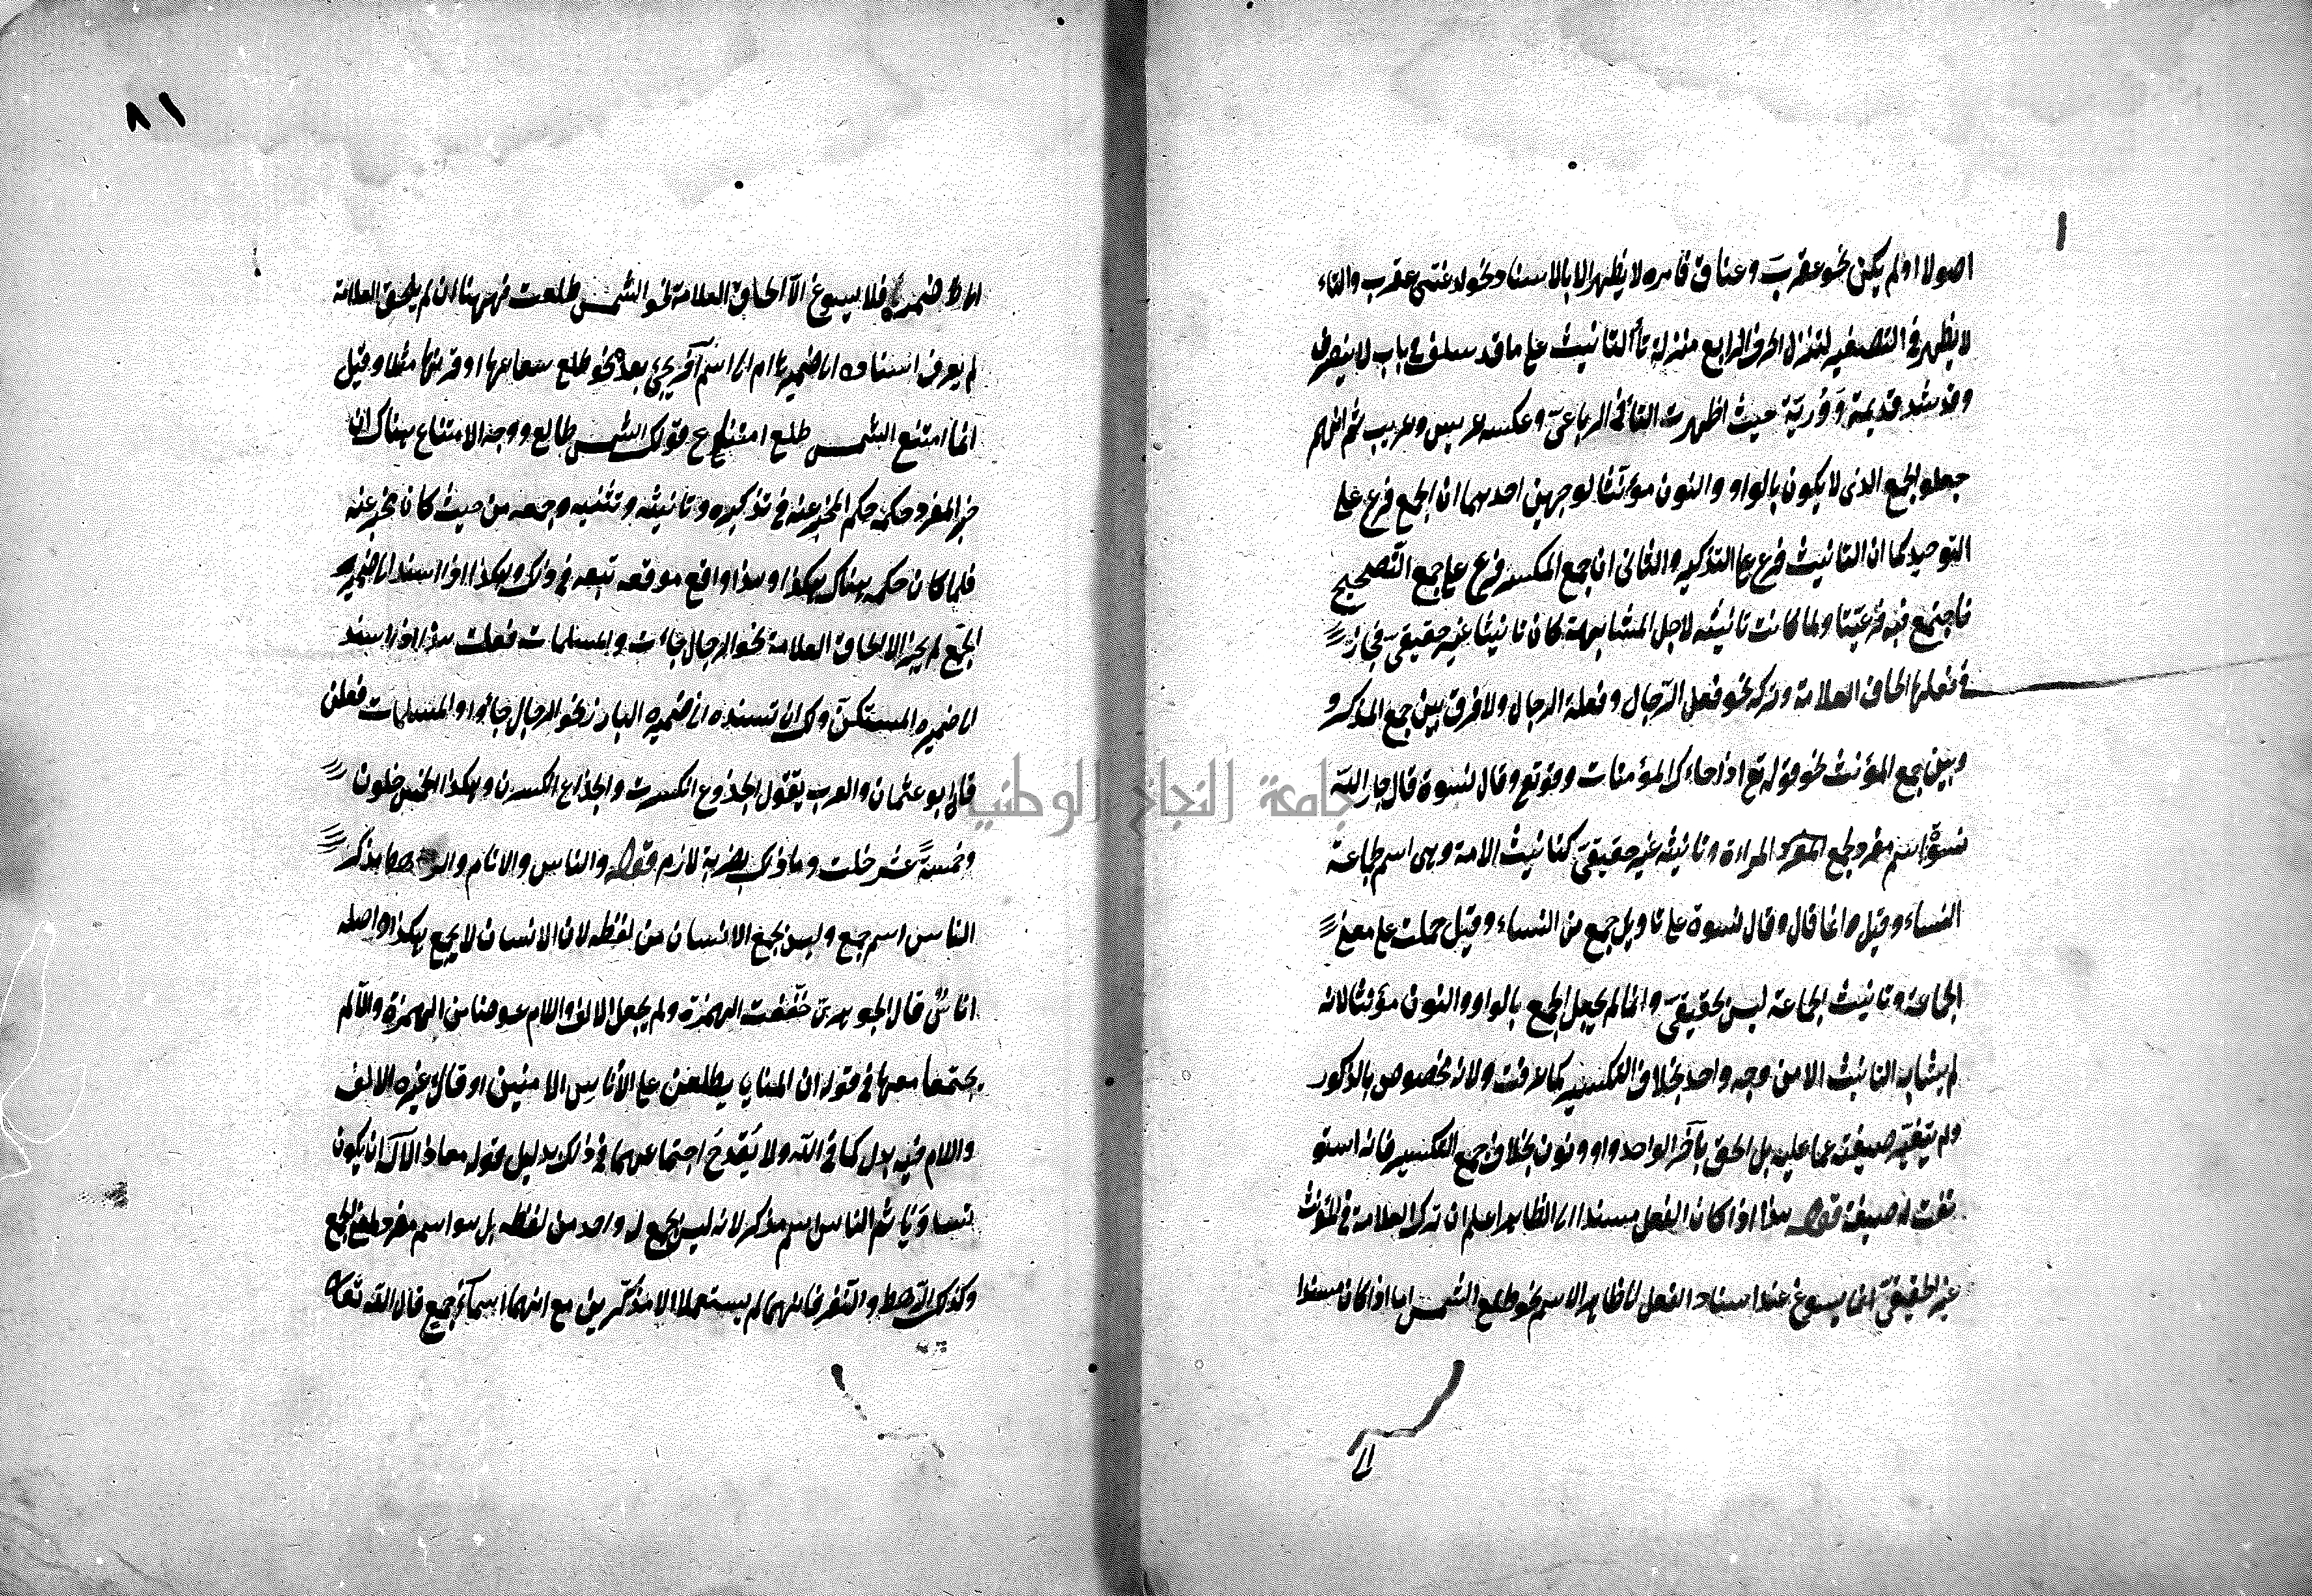 اصولا او لم يكن نحو عقرب وعناق فامره لا يظهر الا بالاسناد نحو لدغتنى عقرب والتاء
لا يظهر فى التصغير لتنزل الحرف الرابع منزلة تاء التانيث على ما قد سلف فى باب لا ينصرف
وقد شذ قديمة وورية حيث اظهرت التاء فى الرباعى وعكسه عريس وعريب ثم انهم
جعلوا الجمع الذى لا يكون بالواو والنون مؤنثا لوجهين احدهما ان الجمع فرع على
التوحيد كما ان التانيث فرع على التذكير والثانى ان جمع المكسر فرع على جمع التصحيح
فاجتمع فيه فرعيتا ولما كانت تانيثه لاجل المشابهة كان تانيثا غير حقيقى فجاز
فى فعلها الحاق العلامة وتركه نحو فعل الرجال وفعلة الرجال ولا فرق بين جمع المذكر و
وبين جمع المؤنث نحو قوله تع اذا جاءك المؤمنات وقوتع وقال نسوة قال جار الله
نسوة اسم مفرد لجمع المراءة وتانيثه غير حقيقى كتانيث الامة وهى اسم لجماعة
النساء وقيل وانما قال وقال نسوة على تاويل جمع من النساء وقيل حملت على معنى
الجماعة وتانيث الجماعة ليس بحقيقى وانما لم يجعل الجمع بالواو والنون مؤنثا لانه
لم يشابه التانيث الا من وجه واحد بخلاف التكسير كما عرفت ولانه مخصوص بالذكور
ولم يتغير صيغته عما عليه بل الحق بآخر الواحد واو ونون بخلاف جمع التكسير فانه استو
نفت له صيغة قوله هذا اذا كان الفعل مسندا الى الظاهر اعلم ان ترك العلامة فى المؤنث
غير الحقيقى انما يسوغ عند اسناد الفعل الى ظاهر الاسم نحو طلع الشمس اما اذا كان مسندا
٨١
الى ضميره فلا يسوغ الا الحاق العلامة نحو الشمس طلعت فههنا ان لم يلحق العلامة
لم يعرف اسناده الى ضميرها ام الى اسم آخر يجئ بعد نحو طلع شعاعها او قرنها مثلا وقيل
انما امتنع الشمس طلع امتناع قولك الشمس طالع ووجه الامتناع هناك ان
خبر المفرد حكمه حكم المخبر عنه فى تذكيره وتانيثه وتثنيه وجمعه من حيث كان مخبر عنه
فلما كان حكمه هناك هكذا وهذا واقع موقعه تبعه فى ذلك وهكذا اذا اسند الى ضمير
الجمع لم يجز الا الحاق العلامة نحو الرجال جاءت والمسلمات فعلت هذا اذا اسند
الى ضميره المستكن ولك ان تسنده الى ضميره البارز نحو الرجال جاءوا والمسلمات فعلن
قال ابو عثمان والعرب يقول الجذوع انكسرت والجذاع انكسرن وهكذا لخمس خلون
وخمسة عشر خلت وما ذلك بضربة لازم قوله والناس والانام والرهط مما يذكر
الناس اسم جمع وليس بجمع الانسان من لفظه لان الانسان لا يجمع هكذا واصله
اناس قال الجوهرى خففت الهمزة ولم يجعل الالف واللام عوضا من الهمزة والا لم
يجتمعا معها فى قوله ان المنايا يطلعن على الاناس الامنين او قال غيره الالف
واللام فيه بدل كما فى الله ولا يقدح اجتماعهما فى ذلك بدليل قوله معاذ الاله ان يكون
ثم الناس اسم مذكر لانه ليس بجمع له واحد من لفظه بل هو اسم مفرد لمعنى الجمع
وكذلك الرهط والنفر فانهما لم يستعملا الا مذكرين مع انهما اسما جمع قال الله تعالى
جامعة النجاح الوطنية